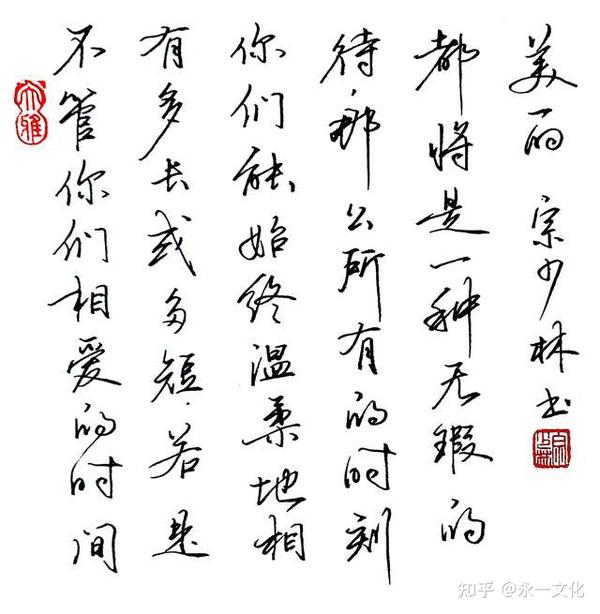 不管你们相爱的时间
有多长或多短,若是
你们能始终温柔地相
待,那么所有的时刻
都将是一种无瑕的
美丽 宗少林书
大雅
知乎 @永一文化